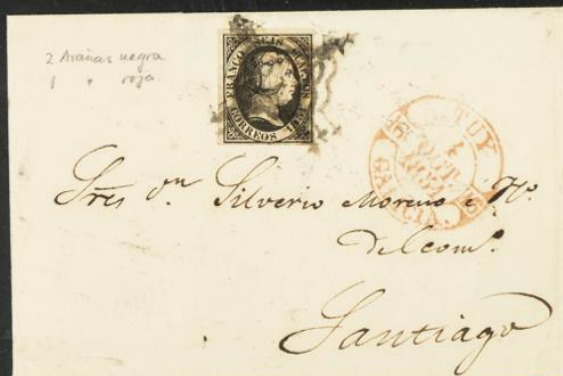 2 Arañas negra
1 " roja
FRANCO SEIS CUARTOS
CORREOS 1851
TUY
1851
GALICIA.
Sres dn. Silverio Moreno é Ho.
Del com.o
Santiago